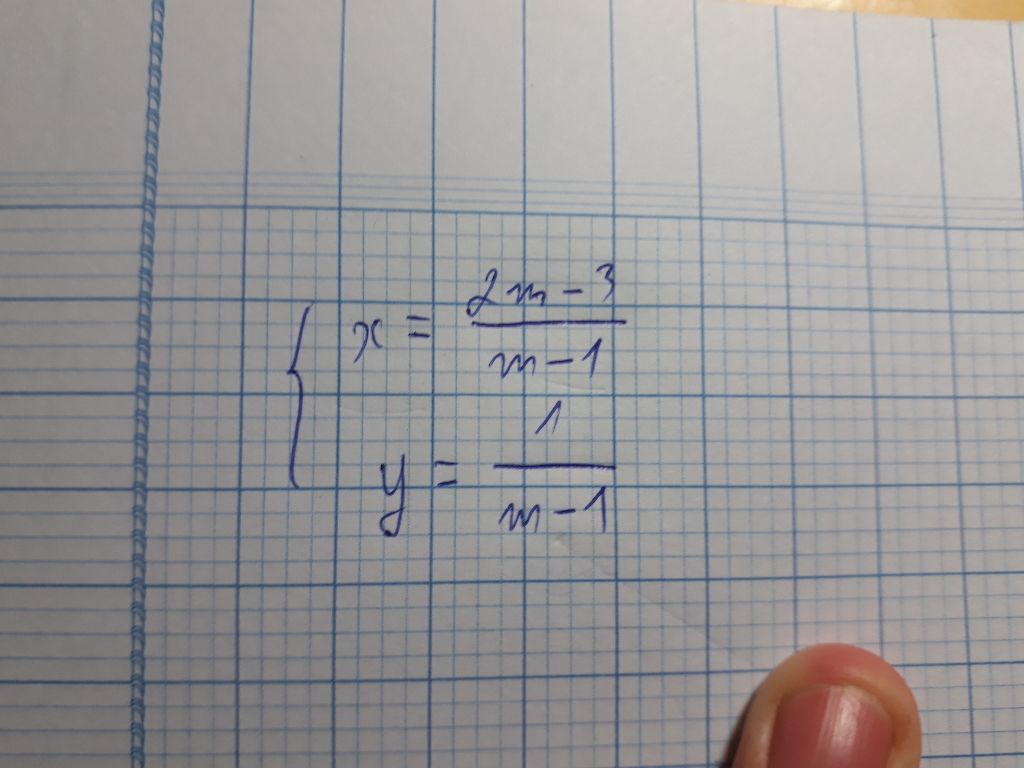 { x = \frac{2m-3}{m-1}
y = \frac{1}{m-1}